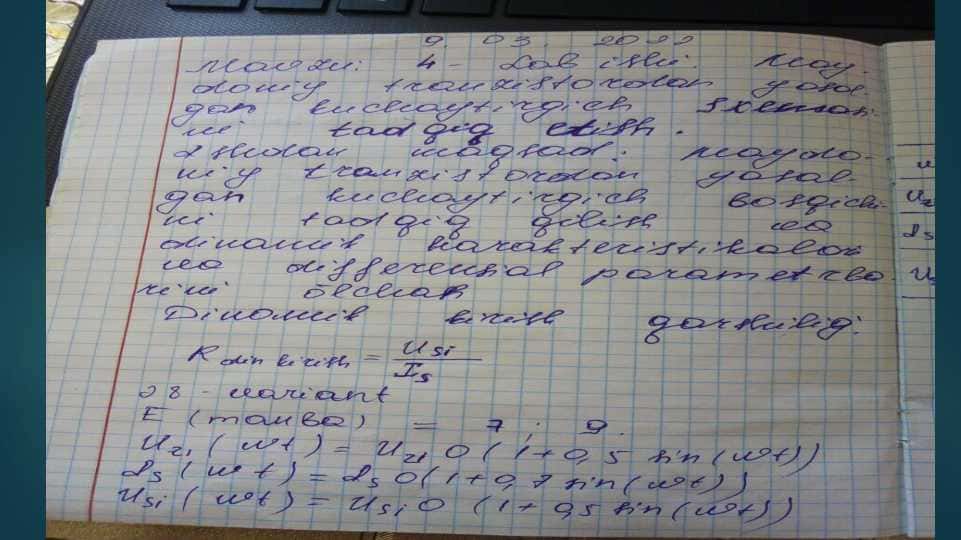 9. 03. 2022
Mavzu: 4- Lab ishi. May.
doniy tranzistordan yasal.
gan kuchaytirgich sxemasi
ni tadqiq etish.
Ishdan maqsad: Maydo-
niy tranzistordan yasal-
gan kuchaytirgich bosqichi
ni tadqiq qilish va
dinamik xarakteristikalar
va differensial parametrla-
rini ölchash
Dinamik kirish qarshiligi:
R din kirish = Usi / Is
28 - variant
E (manba) = 7 ; 9.
Uzi (wt) = Uzi0 (1+0,5 sin(wt))
Is (wt) = Is0(1+0,7 sin(wt))
Usi (wt) = Usi0 (1+0,5 sin(wt))